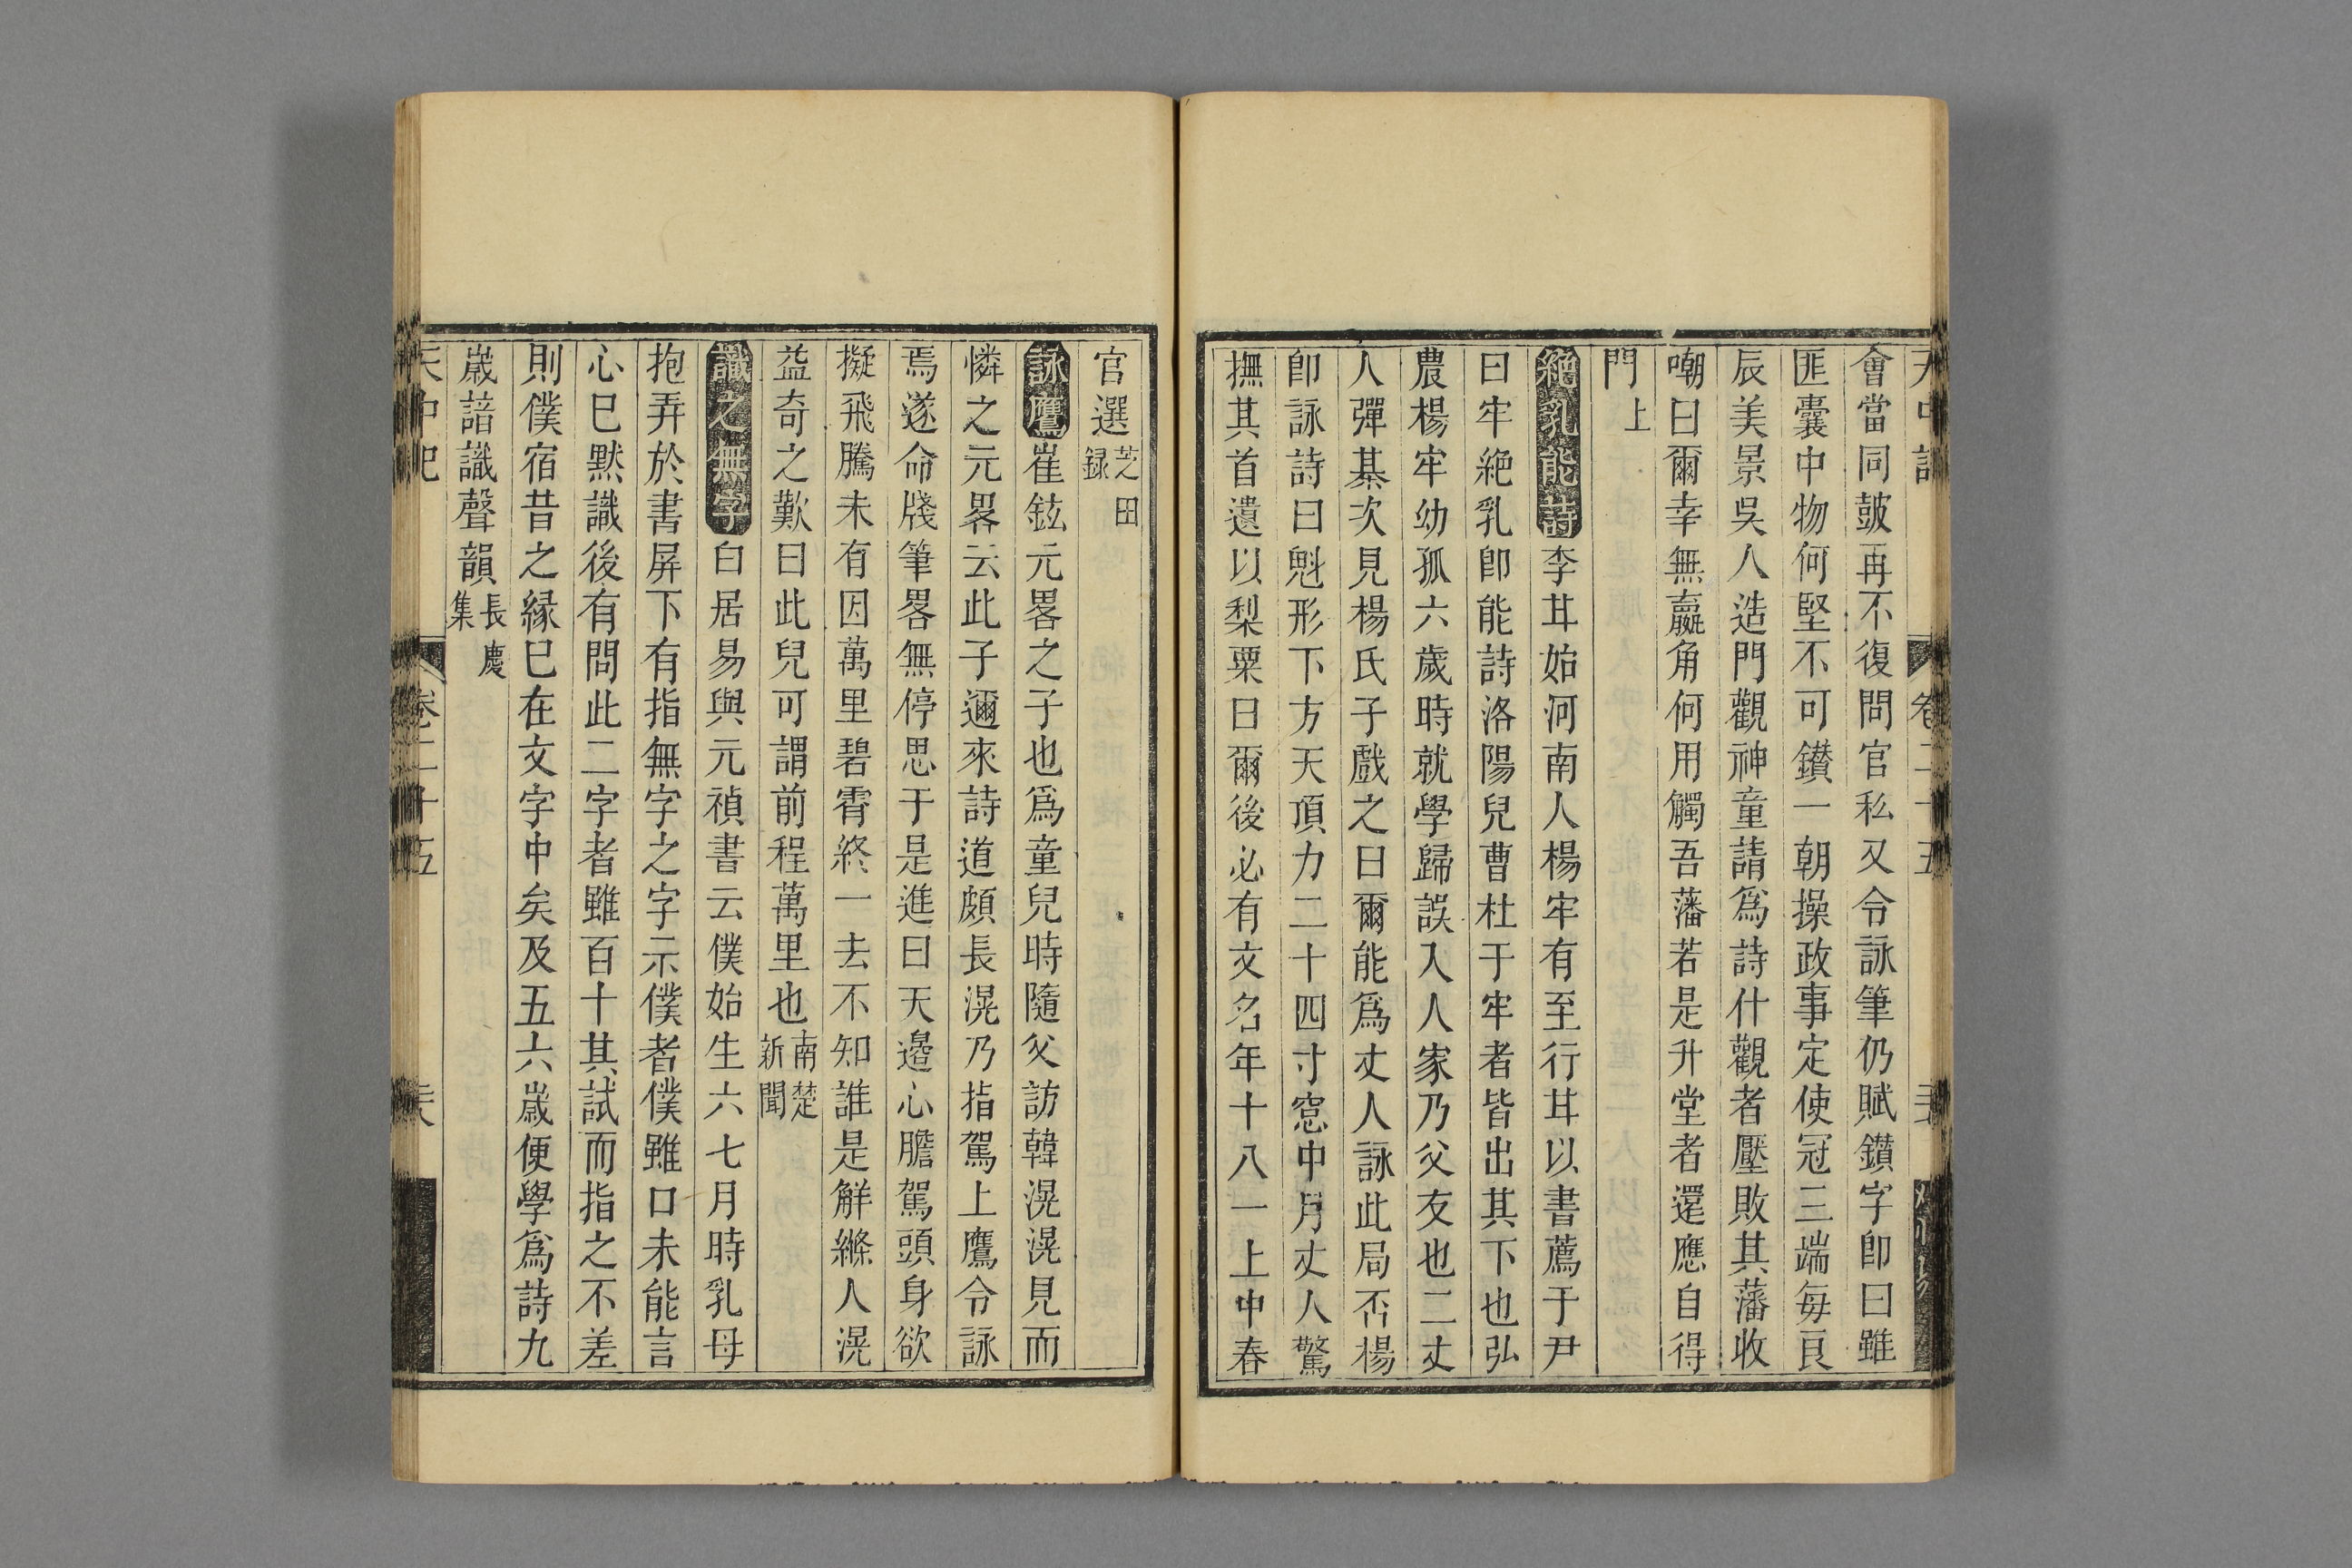 會當同皷再不復問官私又令詠筆仍賦鑚字卽曰雖
匪囊中物何堅不可鑚一朝操政事定使冠三端每良
辰美景吳人造門觀神童請爲詩什觀者壓敗其藩收
嘲曰爾幸無羸角何用觸吾藩若是升堂者還應自得
門上
絶乳能詩李甘始河南人楊牢有至行甘以書薦于尹
曰牢絶乳卽能詩洛陽兒曹杜于牢者皆出其下也弘
農楊牢幼孤六歲時就學歸誤入人家乃父友也二丈
人彈棊次見楊氏子戲之曰爾能爲丈人詠此局否楊
卽詠詩曰魁形下方天頂力二十四寸窓中月丈人驚
撫其首遺以梨粟曰爾後必有文名年十八一上中春
官選芝田録
詠鷹崔鉉元畧之子也爲童兒時隨父訪韓滉滉見而
憐之元畧云此子邇來詩道頗長滉乃指駕上鷹令詠
焉遂命牋筆畧無停思于是進曰天邉心膽駕頭身欲
擬飛騰未有因萬里碧霄終一去不知誰是解縧人滉
益奇之歎曰此兒可謂前程萬里也南楚新聞
識之無字白居易與元禎書云僕始生六七月時乳母
抱弄於書屏下有指無字之字示僕者僕雖口未能言
心巳黙識後有問此二字者雖百十其試而指之不差
則僕宿昔之縁巳在文字中矣及五六嵗便學爲詩九
嵗諳識聲韻長慶集
天中記
卷二十五